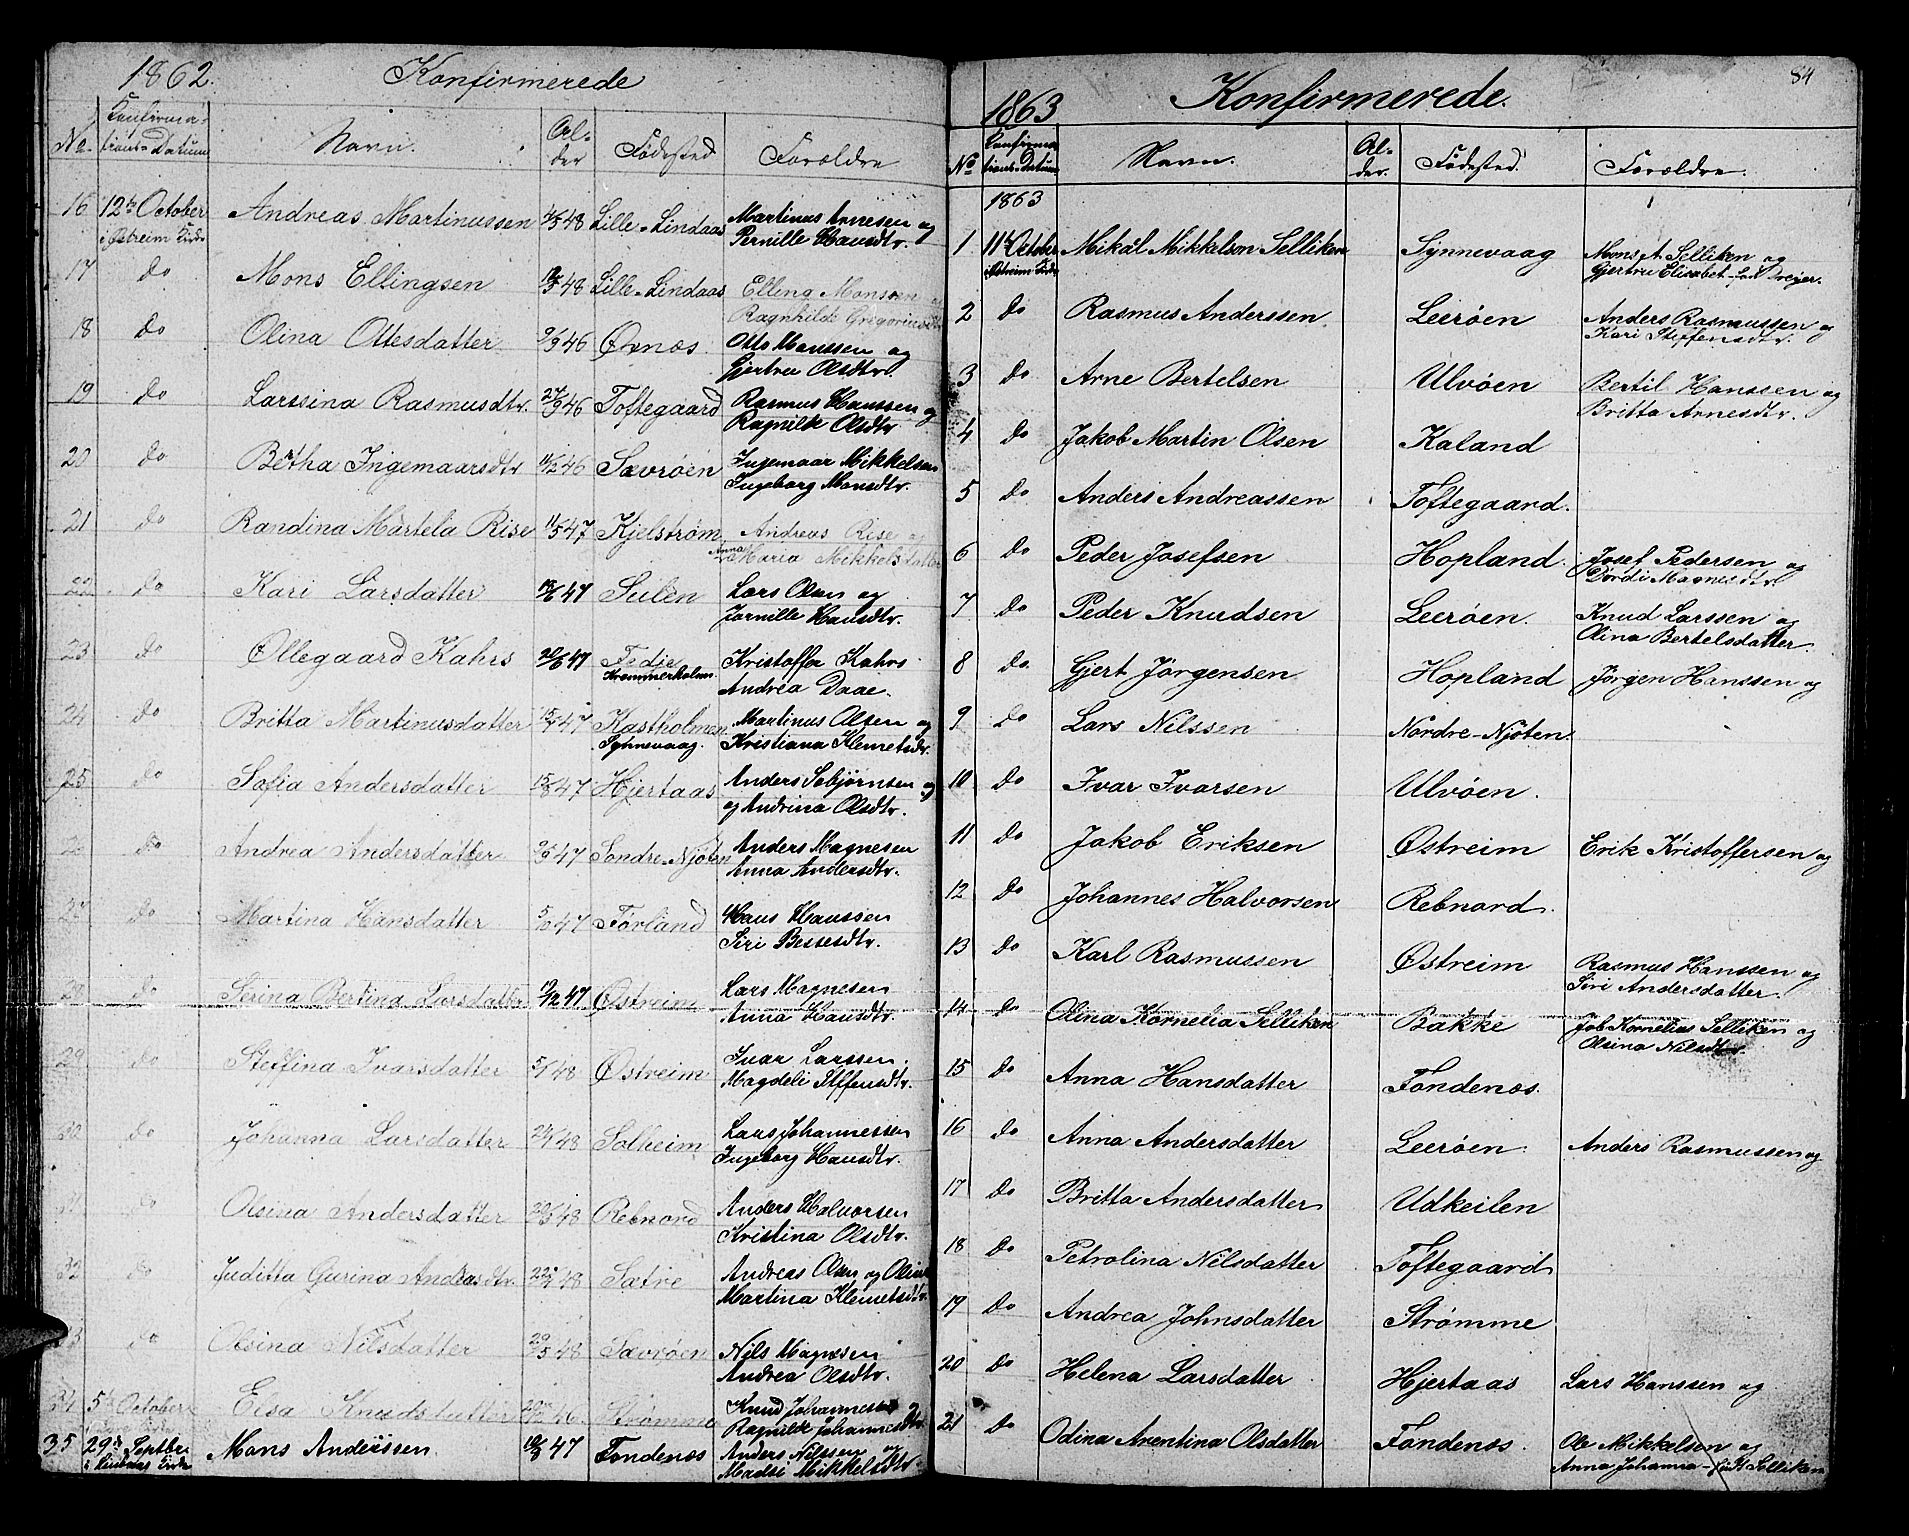 1862. Konfirmerede
No. Konfirma-tions-Datum Navn. Al-der Fødested Forældre
16 12te October i Østreim Kirke Andreas Martinussen 48 Lille-Lindaas Martinus Arnesen og
Pernille Hansdtr.
17 do Mons Ellingsen 48 Lille-Lindaas Elling Monsen og
Ragnhilde Gregoriusdtr
18 do Olina Ottesdatter 46 Øvnæs. Otto Monssen og
Gjertru Olsdtr.
19 do Larssina Rasmusdtr. 27/9 46 Toftegaard Rasmus Hanssen og
Ragnilde Olsdtr
20 do Bertha Ingemaarsdtr 46 Sævrøen Ingemaar Mikkelsen
Ingeborg Monsdtr.
21 do Randina Martela Rise 11/5 47 Kjelstrøm Andreas Rise og
Anna Maria Mikkelsdatter
22 do Kari Larsdatter 47 Sulen Lars Olsen og
Pernille Hansdtr.
23 do Ollegaard Kahrs 47 Fedje Kræmmerholm. Kristoffer Kahrs
Andrea Daae.
24 do Britta Martinusdatter 47 Kastholmen Synnevaag. Martinus Olsen og
Kristiana Klemetsdtr.
25 do Sofia Andersdatter 15/8 47 Hjertaas Anders Sebjørnsen og
og Andrina Olsdtr.
26 do Andrea Andersdatter 47 Søndre-Njøten Anders Magnesen
Anna Andersdtr.
27 do Martina Hansdatter 5/10 47 Førland Hans Hanssen
Siri Bessesdtr.
28 do Serina Bertina Larsdatter 47 Østreim Lars Magnesen
Anna Hansdtr.
29 do Steffina Ivarsdatter 5/1 48 Østreim Ivar Larssen.
Magdeli Steffensdtr.
30 do Johanna Larsdatter 24/1 48 Solheim Lars Johannessen
Ingeborg Hansdtr.
31 do Olsina Andersdatter 48 Rebnord Anders Halvorsen
Kristina Olsdtr.
32 do Juditta Gurina Andreasdtr. 48 Sætre Andreas Olsen og Olina
Martina Klemetsdtr.
33 do Olsina Nilsdatter 29/5 48 Sævrøen Nils Magnesen
Andrea Olsdtr.
34 5te October Elsa Knudsdatter 46 Strømme Knud Johannesen
Ragnilde Johannesdtr.
35 29de Septbr. Mons Anderssen 47 Fondenæs Anders Nilssen og
Madsi Mikkelsdtr.
84
1863 Konfirmerede.
No Konfirma-tions-Datum Navn. Al-der. Fødested. Forældre.
1863
1 11te October i Østreim Kirke Mikal Mikkelson Selliken Synnevaag Mons A Selliken og
Gjertru Elisabet født Dreyer.
2 do Rasmus Anderssen. Leerøen Anders Rasmussen og
Kari Steffensdtr.
3 do Arne Bertelsen Ulvøen Bertil Hanssen og
Britta Arnesdtr.
4 do Jakob Martin Olsen Kaland
5 do Anders Andreassen Toftegaard.
6 do Peder Josefsen Hopland. Josef Pedersen og
Dordi Magnesdtr
7 do Peder Knudsen Leerøen. Knud Larssen og
Olina Bertelsdatter
8 do. Gjert Jørgensen Hopland Jørgen Hanssen og
9 do Lars Nilssen Nordre-Njøten.
10 do Ivar Ivarsen Ulvøen.
11 do Jakob Eriksen Østreim Erik Kristoffersen og
12 do Johannes Halvorsen Rebnord.
13 do Karl Rasmussen Østreim Rasmus Hanssen og
Siri Andersdatter.
14 do Olina Kornelia Selliken Bakke Job Kornelius Selliken og
Olsina Nilsdtr.
15 do Anna Hansdatter Fondenæs.
16 do Anna Andersdatter Leerøen. Anders Rasmussen og
17 do Britta Andersdatter Udkeilen
18 do Petrolina Nilsdatter Toftegaard
19 do Andrea Johnsdatter Strømme
20 do Helena Larsdatter Hjertaas Lars Hanssen og
21 do Odina Arentina Olsdatter Fondenæs. Ole Mikkelsen og
Anna Johanna født Selliken